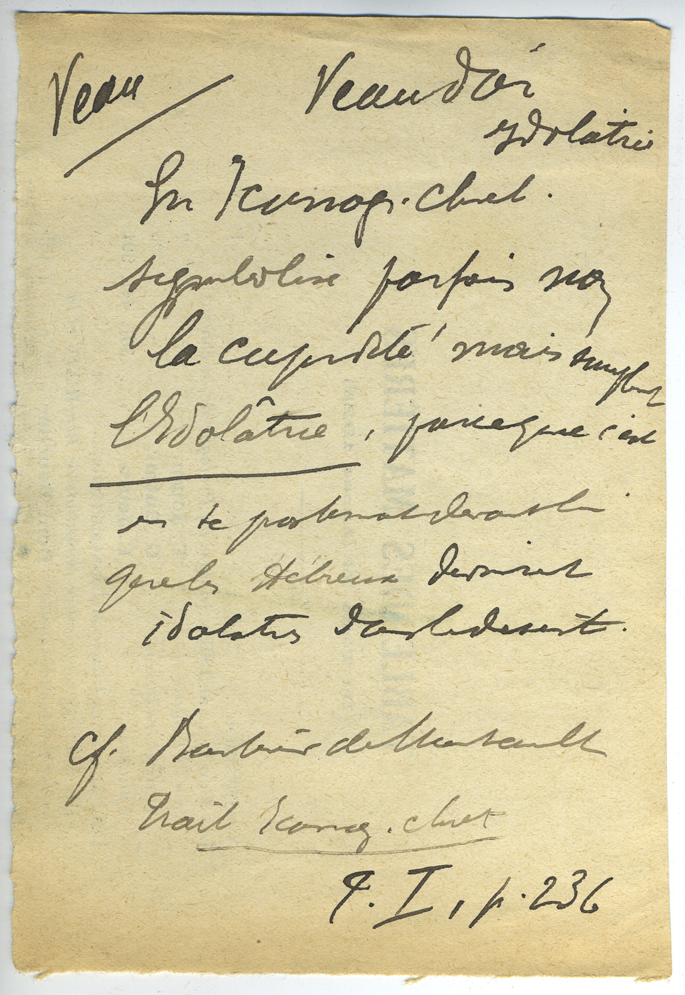 Veau / Veau d'or
ydolatrie
En Iconog. chret.
symbolise parfois non
la cupidité mais simplement
l'Idolâtrie, parce que c'est
en se prosternant devant lui
que les Hébreux devinrent
idolatres dans le désert.
Cf. Barbier de Montault
Trait Iconog. chret
T. I, p. 236